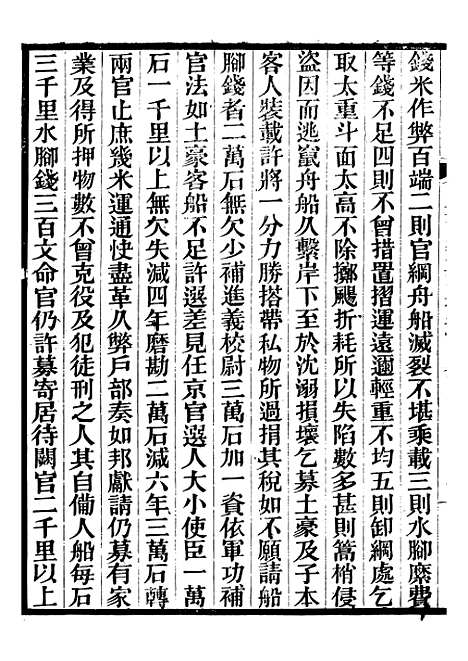 錢米作弊百端二則官綱舟船滅裂不堪乘載三則水腳縻費
等錢不足四則不曾措置摺運遠邇輕重不均五則卸綱處乞
取太重斗面太高不除擲颺折耗所以失陷數多甚則篙梢侵
盜因而逃竄舟船久繫岸下至於沈溺損壞乞募土豪及子本
客人裝載許將一分力勝搭帶私物所過捐其稅如不願請船
腳錢者二萬石無欠少補進義校尉三萬石加一資依軍功補
官法如土豪客船不足許選差見任京官選人大小使臣一萬
石一千里以上無欠失減四年磨勘二萬石減六年三萬石轉
兩官止庶幾米運通快盡革久弊戶部奏如邦獻請仍募有家
業及得所押物數不曾克役及犯徒刑之人其自備人船每石
三千里水腳錢三百文命官仍許募寄居待闕官二千里以上